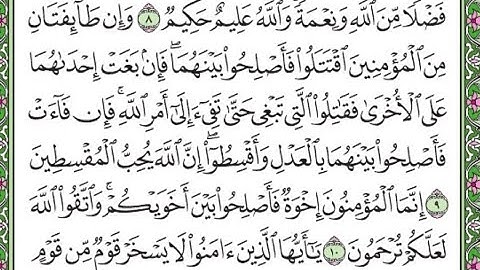 فَضْلًا مِّنَ ٱللَّهِ وَنِعْمَةً وَٱللَّهُ عَلِيمٌ حَكِيمٌ ٨ وَإِن طَآئِفَتَانِ
مِنَ ٱلْمُؤْمِنِينَ ٱقْتَتَلُوا۟ فَأَصْلِحُوا۟ بَيْنَهُمَا ۖ فَإِنۢ بَغَتْ إِحْدَىٰهُمَا
عَلَى ٱلْأُخْرَىٰ فَقَٰتِلُوا۟ ٱلَّتِى تَبْغِى حَتَّىٰ تَفِىٓءَ إِلَىٰٓ أَمْرِ ٱللَّهِ ۚ فَإِن فَآءَتْ
فَأَصْلِحُوا۟ بَيْنَهُمَا بِٱلْعَدْلِ وَأَقْسِطُوٓا۟ ۖ إِنَّ ٱللَّهَ يُحِبُّ ٱلْمُقْسِطِينَ
٩ إِنَّمَا ٱلْمُؤْمِنُونَ إِخْوَةٌ فَأَصْلِحُوا۟ بَيْنَ أَخَوَيْكُمْ ۚ وَٱتَّقُوا۟ ٱللَّهَ
لَعَلَّكُمْ تُرْحَمُونَ ١٠ يَٰٓأَيُّهَا ٱلَّذِينَ ءَامَنُوا۟ لَا يَسْخَرْ قَوْمٌ مِّن قَوْمٍ